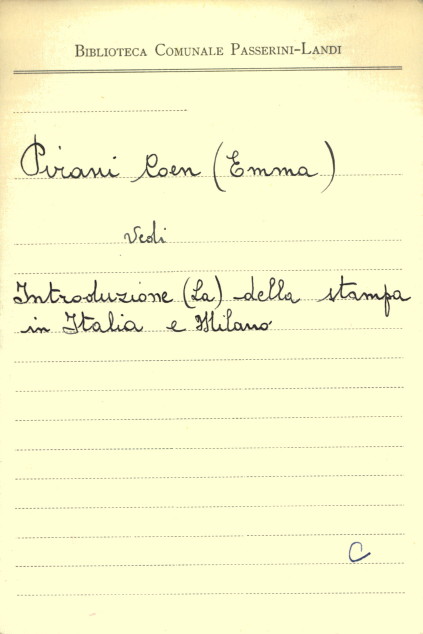 BIBLIOTECA COMUNALE PASSERINI-LANDI
Pirani Coen (Emma)
Vedi
Introduzione (La) della stampa
in Italia e Milano
C